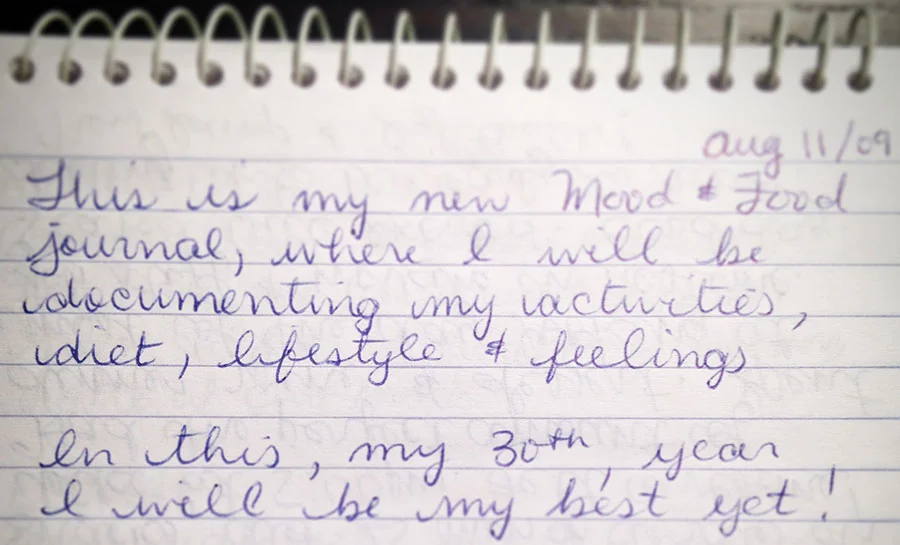 Aug 11/09
This is my new Mood & Food
journal, where I will be
documenting my activities,
diet, lifestyle & feelings
In this, my 30th, year
I will be my best yet!